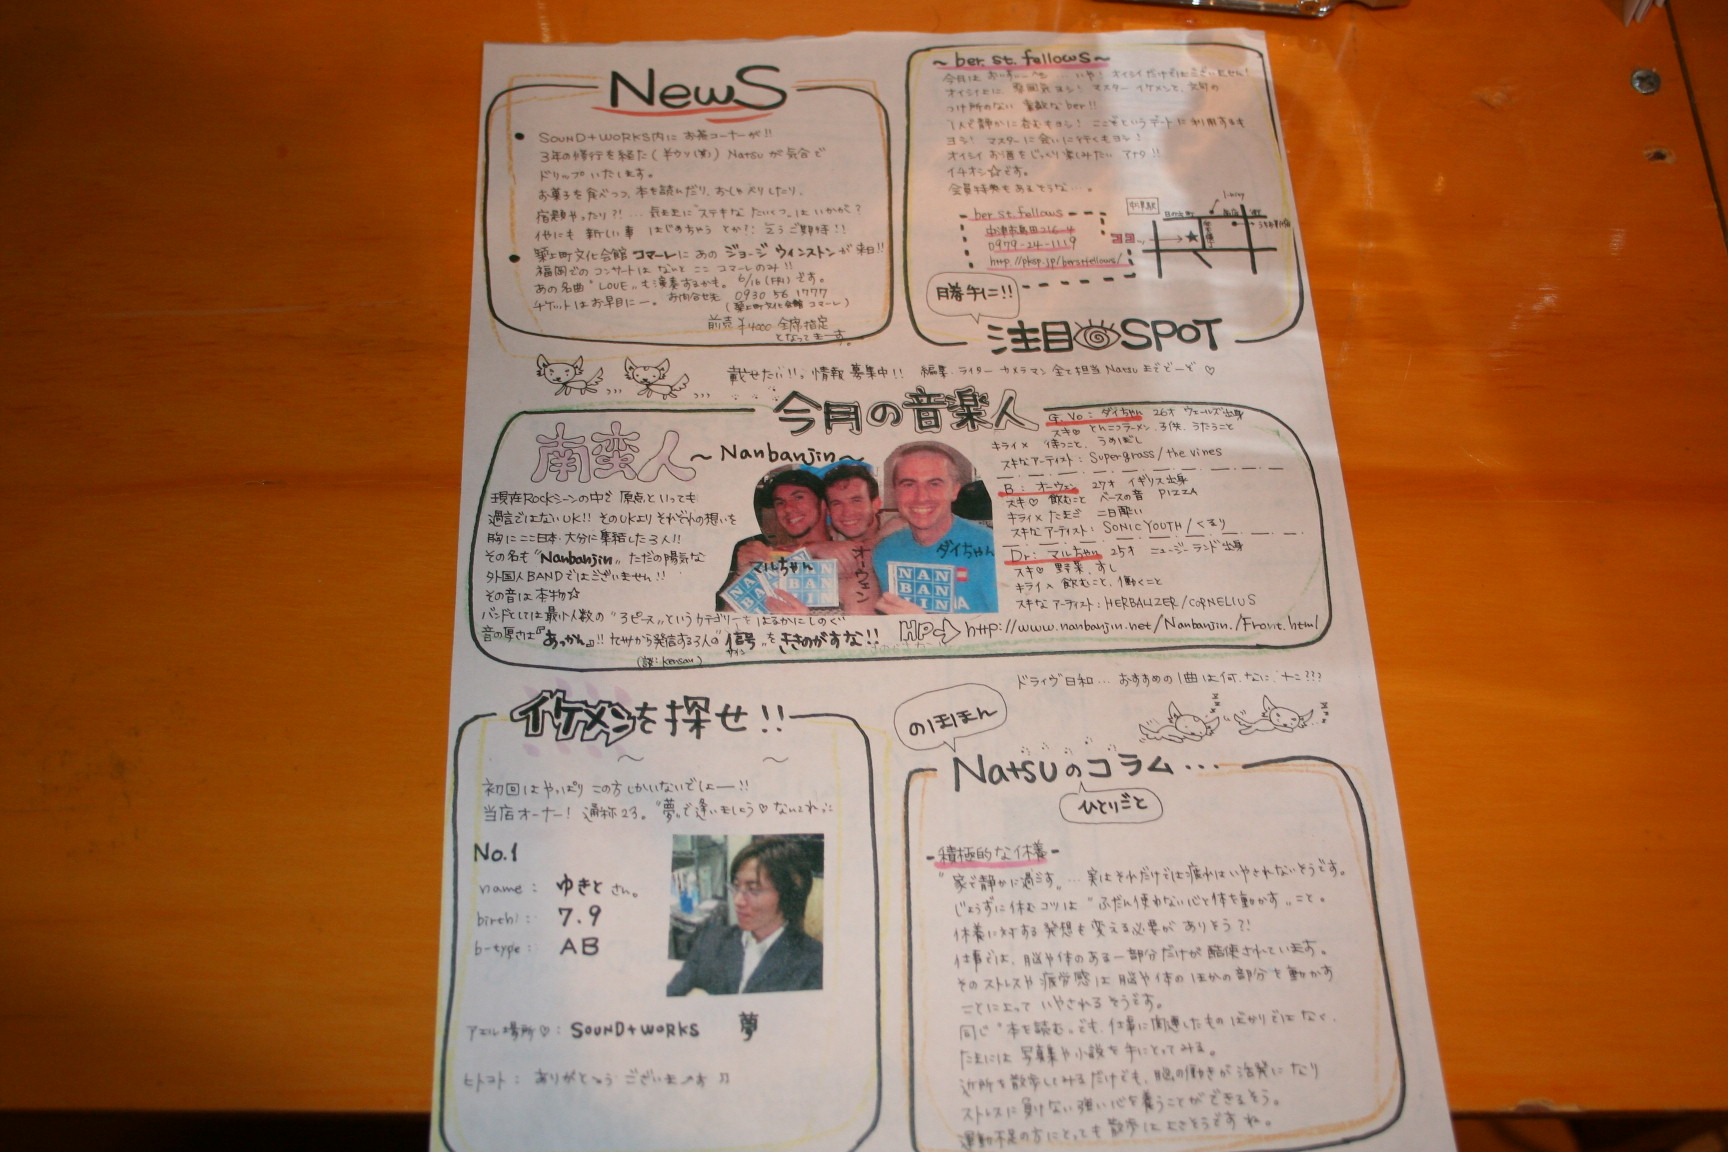 NewS
• SOUND+WORKS内に お茶コーナーが!!
3年の修行を経た(半ウソ(笑)) Natsuが気合で
ドリップいたします。
お菓子を食べつつ、本を読んだり、おしゃべりしたり、
宿題やったり?!… 気ままに"ステキな たいくつ"はいかが?
他にも 新しい事 はじめちゃう とか!! 乞うご期待!!
• 築上町文化会館 コマーレに あの ジョージ ウィンストン が来日!!
福岡での コンサートは なんと ここ コマーレのみ!!
あの名曲"LOVE"も演奏するかも。 6/16 です。
チケットはお早目に―。 お問合せ先 0930 56 1777
(築上町文化会館 コマーレ)
前売 ¥4000 全席指定
となってまーす。
~ber. st. fellows~
今月は おいすぃ〜も … いや! オイシイだけではございません!
オイシイ上に 雰囲気ヨシ! マスター イケメンと、文句の
つけ所のない 素敵なber!!
1人で静かに呑むもヨシ! ここぞというデートに利用するも
ヨシ! マスターに会いに行くもヨシ!
オイシイ お酒をじっくり楽しみたい アナタ!!
イチオシ☆です。
会員特典もあるそうな…。
ber st. fellows
中津市島田216-4
0979-24-1119
http://pksp.jp/berstfellows/
中津駅
勝手に!!
注目 SPOT
載せたい!!。情報 募集中!! 編集・ライター・カメラマン 全て担当 Natsu までど〜ぞ ♡
今月の音楽人
南蛮人
~Nanbanjin~
現在Rockシーンの中で 原点といっても
過言ではないUK!! そのUKより それぞれの想いを
胸に ここ日本・大分に集結した3人!!
その名も"Nanbanjin" ただの陽気な
外国人BANDではございません!!
その音は本物☆
バンドとしては最小人数の "3ピース"というカテゴリーを はるかにしのぐ
音の厚さは『あっかん』!! 九州から発信する3人の"信号"を ききのがすな!!
サイン
(談: Kensan)
HP→ http://www.nanbanjin.net/Nanbanjin./Front.html
マルちゃん
オーウェン
ダイちゃん
NAN
BAN
JIN
G. Vo: ダイちゃん 26才 ウェールズ出身
スキ♡ とんこつラーメン、子供、うたうこと
キライ× 待つこと、うめぼし
スキなアーティスト: Supergrass/the vines
B: オーウェン 27才 イギリス出身
スキ♡ 飲むこと ベースの音 PIZZA
キライ× たまご 二日酔い
スキなアーティスト: SONIC YOUTH/くるり
Dr: マルちゃん 25才 ニュージーランド出身
スキ♡ 野菜、すし
キライ× 飲むこと、働くこと
スキなアーティスト: HERBALIZER/CORNELIUS
イケメンを探せ!!
初回は やっぱり この方しかいないでしょ――!!
当店オーナー! 通称23。"夢"で逢いましょう♡ なんてねっ
No.1
name: ゆきと さん。
birth: 7.9
b-type: AB
アエル場所♡: SOUND+WORKS 夢
ヒトコト: ありがとう ございま〜す ♫
ドライヴ日和… おすすめの1曲は 何、なに、ナニ???
のほほん
Natsuのコラム…
ひとりごと
-積極的な休養-
"家で静かに過ごす"… 実はそれだけでは疲れはいやされないそうです。
じょうずに休むコツは "ふだん使わない心と体を動かす" こと。
休養に対する発想も変える必要がありそう?!
仕事では、脳や体のある一部分だけが酷使されています。
そのストレスや疲労感は 脳や体の ほかの部分を動かす
ことによって いやされるそうです。
同じ"本を読む"でも、仕事に関連したものばかりではなく、
たまには 写真集や小説を手にとってみる。
近所を散歩してみるだけでも、脳の働きが活発になり
ストレスに負けない強い心を養うことができるそう。
運動不足の方にとっても 散歩はよさそうですね。